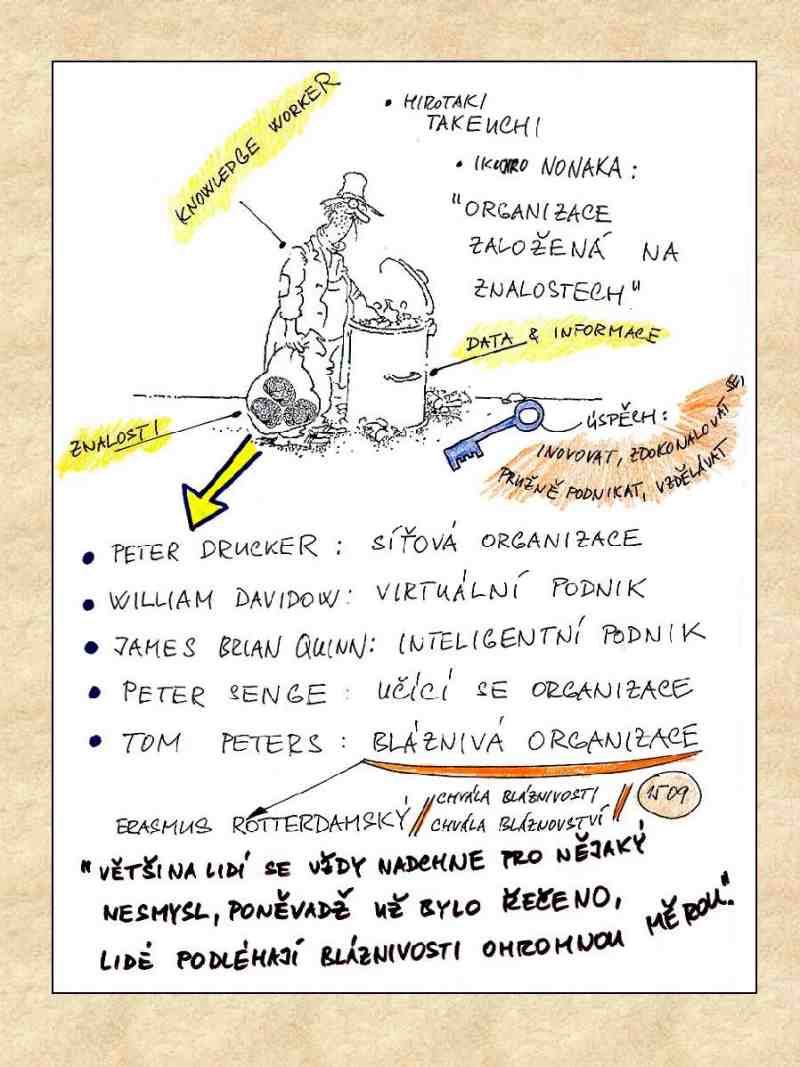 KNOWLEDGE WORKER
• HIROTAKI
TAKEUCHI
• IKUJIRO NONAKA:
"ORGANIZACE
ZALOŽENÁ NA
ZNALOSTECH"
DATA & INFORMACE
ZNALOSTI
ÚSPĚCH:
INOVOVAT, ZDOKONALOVAT SE,
PRUŽNĚ PODNIKAT, VZDĚLÁVAT
• PETER DRUCKER: SÍŤOVÁ ORGANIZACE
• WILLIAM DAVIDOW: VIRTUÁLNÍ PODNIK
• JAMES BRIAN QUINN: INTELIGENTNÍ PODNIK
• PETER SENGE: UČÍCÍ SE ORGANIZACE
• TOM PETERS: BLÁZNIVÁ ORGANIZACE
ERASMUS ROTTERDAMSKÝ // CHVÁLA BLÁZNIVOSTI // 1509
CHVÁLA BLÁZNOVSTVÍ
"VĚTŠINA LIDÍ SE VŽDY NADCHNE PRO NĚJAKÝ
NESMYSL, PONĚVADŽ UŽ BYLO ŘEČENO,
LIDÉ PODLÉHAJÍ BLÁZNIVOSTI OHROMNOU MĚROU."